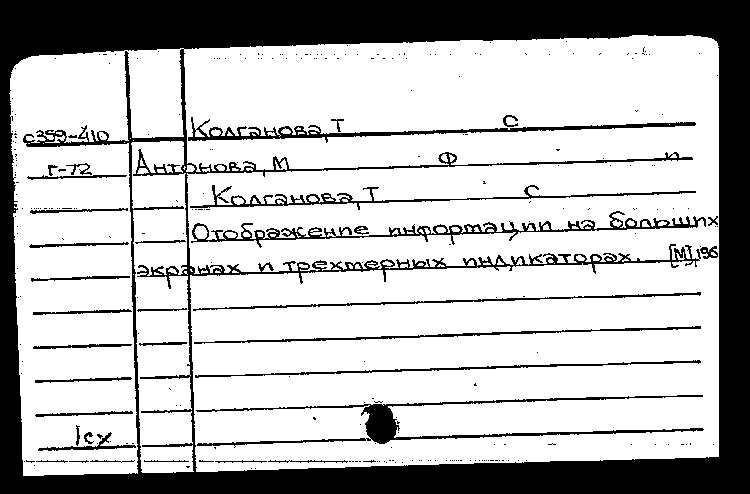 с359-410 Колганова, Т С
г-72 Антонова, М Ф п
Колганова, Т С
Отображение информации на больших
экранах и трехмерных индикаторах. [М], 196
1сх